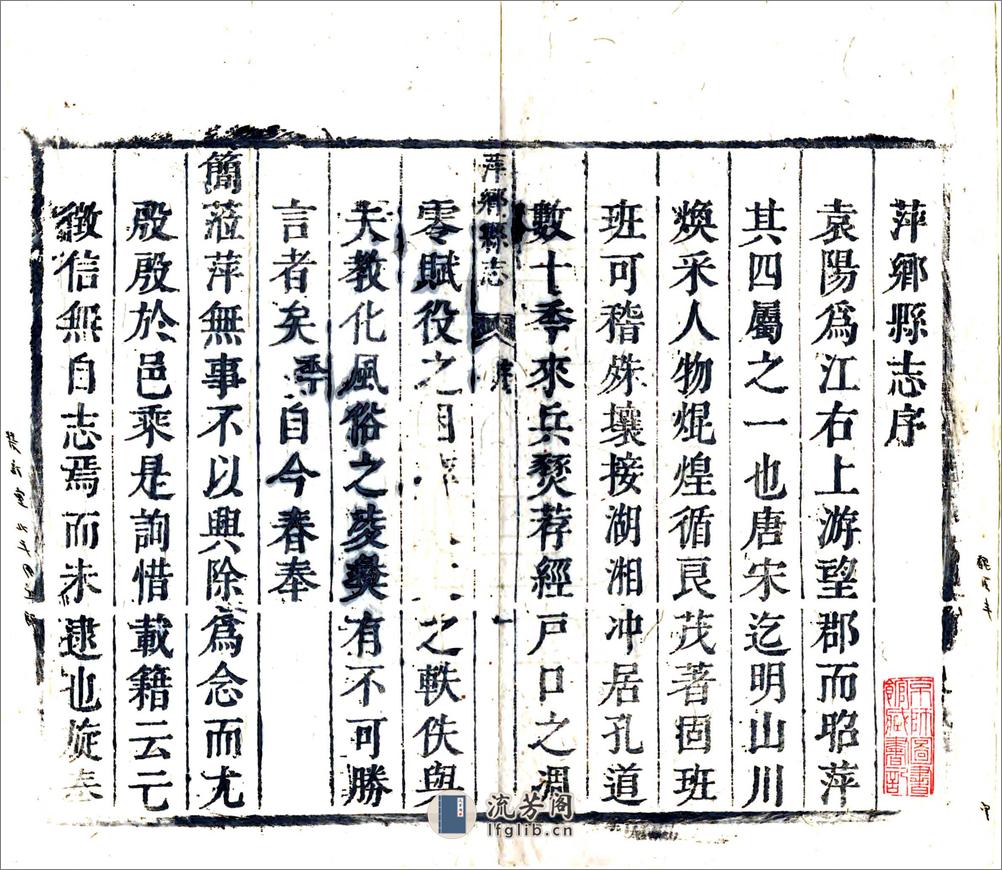 萍鄉縣志序
袁陽爲江右上游望郡而昭萍
其四屬之一也唐宋迄明山川
煥采人物焜煌循良茂著固班
班可稽殊壤接湖湘冲居孔道
數十季來兵燹荐經戶口之凋
萍鄉縣志 序 一
零賦役之
之軼佚與
夫教化風俗之
有不可勝
言者矣季自今春奉
簡蒞萍無事不以興除爲念而尤
殷殷於邑乘是詢惜載籍云亡
徵信無自志焉而未逮也旋奉
京師圖書館藏書記
流芳阁
lfglib.cn